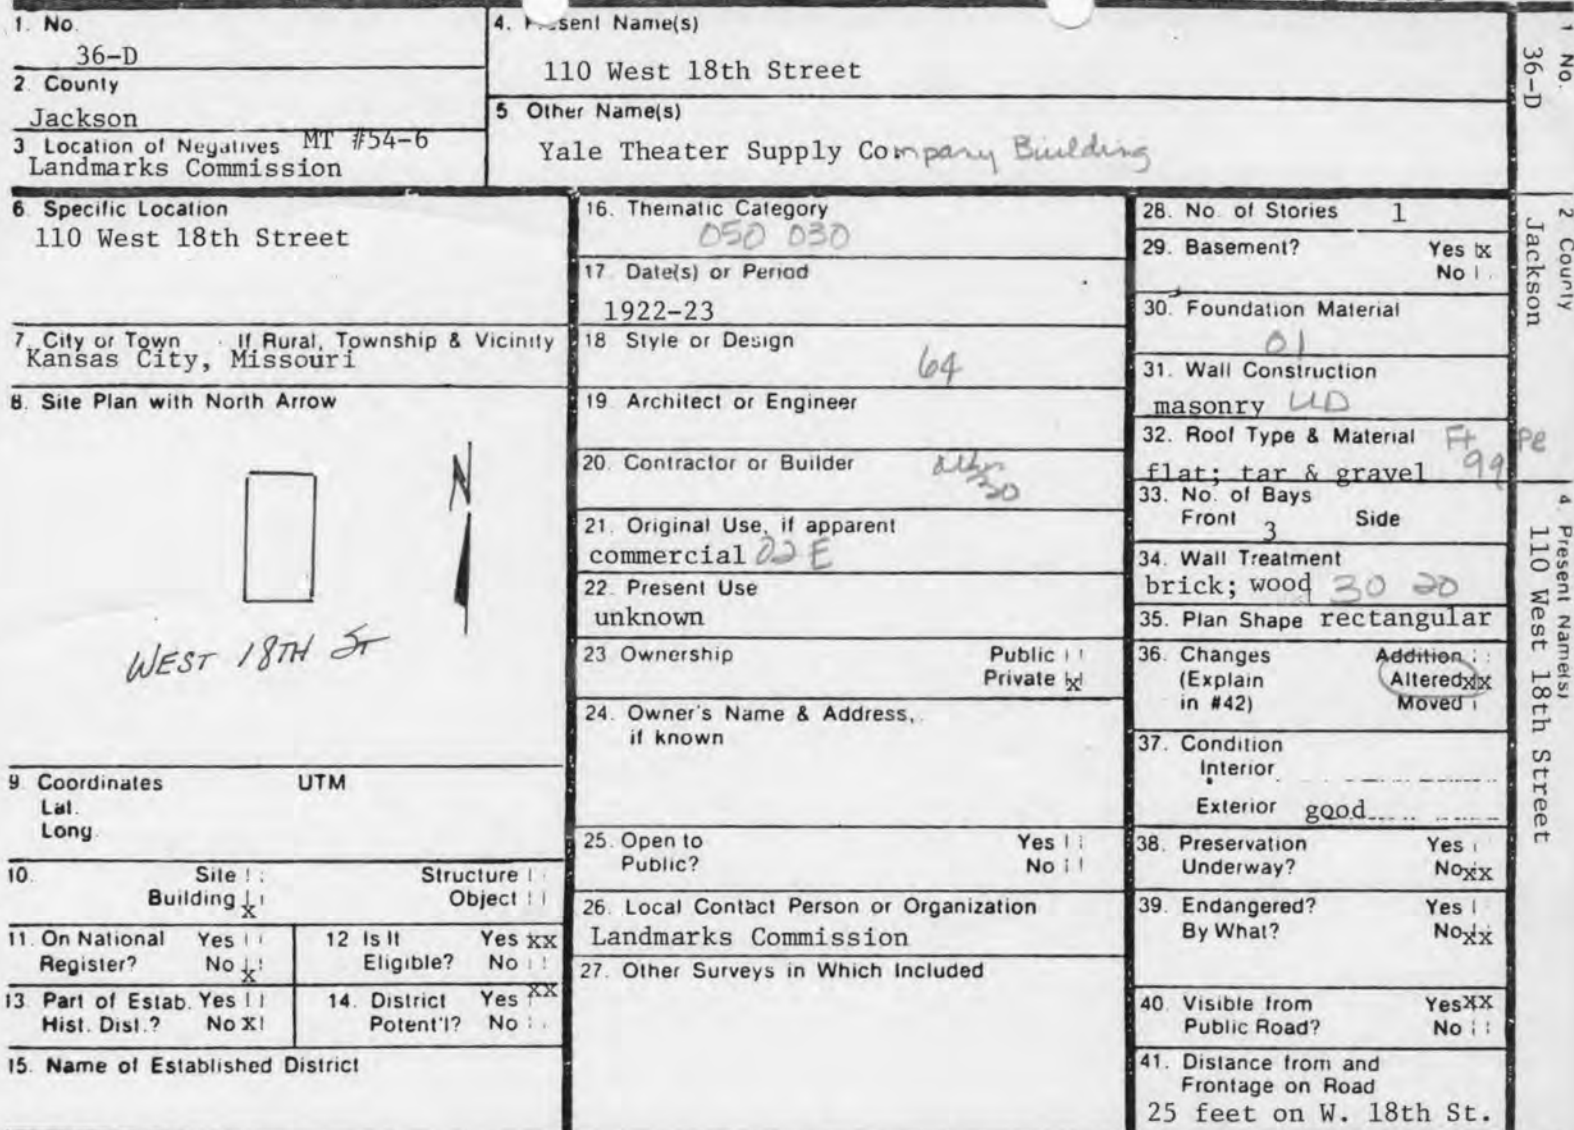 1. No.
36-D
2. County
Jackson
3 Location of Negatives MT #54-6
Landmarks Commission
4. Present Name(s)
110 West 18th Street
5 Other Name(s)
Yale Theater Supply Company Building
6. Specific Location
110 West 18th Street
7. City or Town If Rural, Township & Vicinity
Kansas City, Missouri
8. Site Plan with North Arrow
N
WEST 18TH ST
9. Coordinates UTM
Lat.
Long.
10. Site Structure
Building X Object
11. On National Yes
Register? No X
12 Is It Yes XX
Eligible? No
13. Part of Estab. Yes
Hist. Dist.? No X
14. District Yes XX
Potent'l? No
15. Name of Established District
16. Thematic Category
050 030
17 Date(s) or Period
1922-23
18 Style or Design
64
19. Architect or Engineer
20. Contractor or Builder
30
21. Original Use, if apparent
commercial 02 E
22. Present Use
unknown
23 Ownership Public
Private X
24. Owner's Name & Address,
if known
25. Open to Yes
Public? No
26. Local Contact Person or Organization
Landmarks Commission
27. Other Surveys in Which Included
28. No. of Stories 1
29. Basement? Yes X
No
30. Foundation Material
01
31. Wall Construction
masonry UD
32. Roof Type & Material Ft PE
flat; tar & gravel 99
33. No. of Bays
Front 3 Side
34. Wall Treatment
brick; wood 30 20
35. Plan Shape rectangular
36. Changes Addition
(Explain Altered XX
in #42) Moved
37. Condition
Interior
Exterior good
38. Preservation Yes
Underway? No XX
39. Endangered? Yes
By What? No XX
40. Visible from Yes XX
Public Road? No
41. Distance from and
Frontage on Road
25 feet on W. 18th St.
1 No.
36-D
2 County
Jackson
4. Present Name(s)
110 West 18th Street